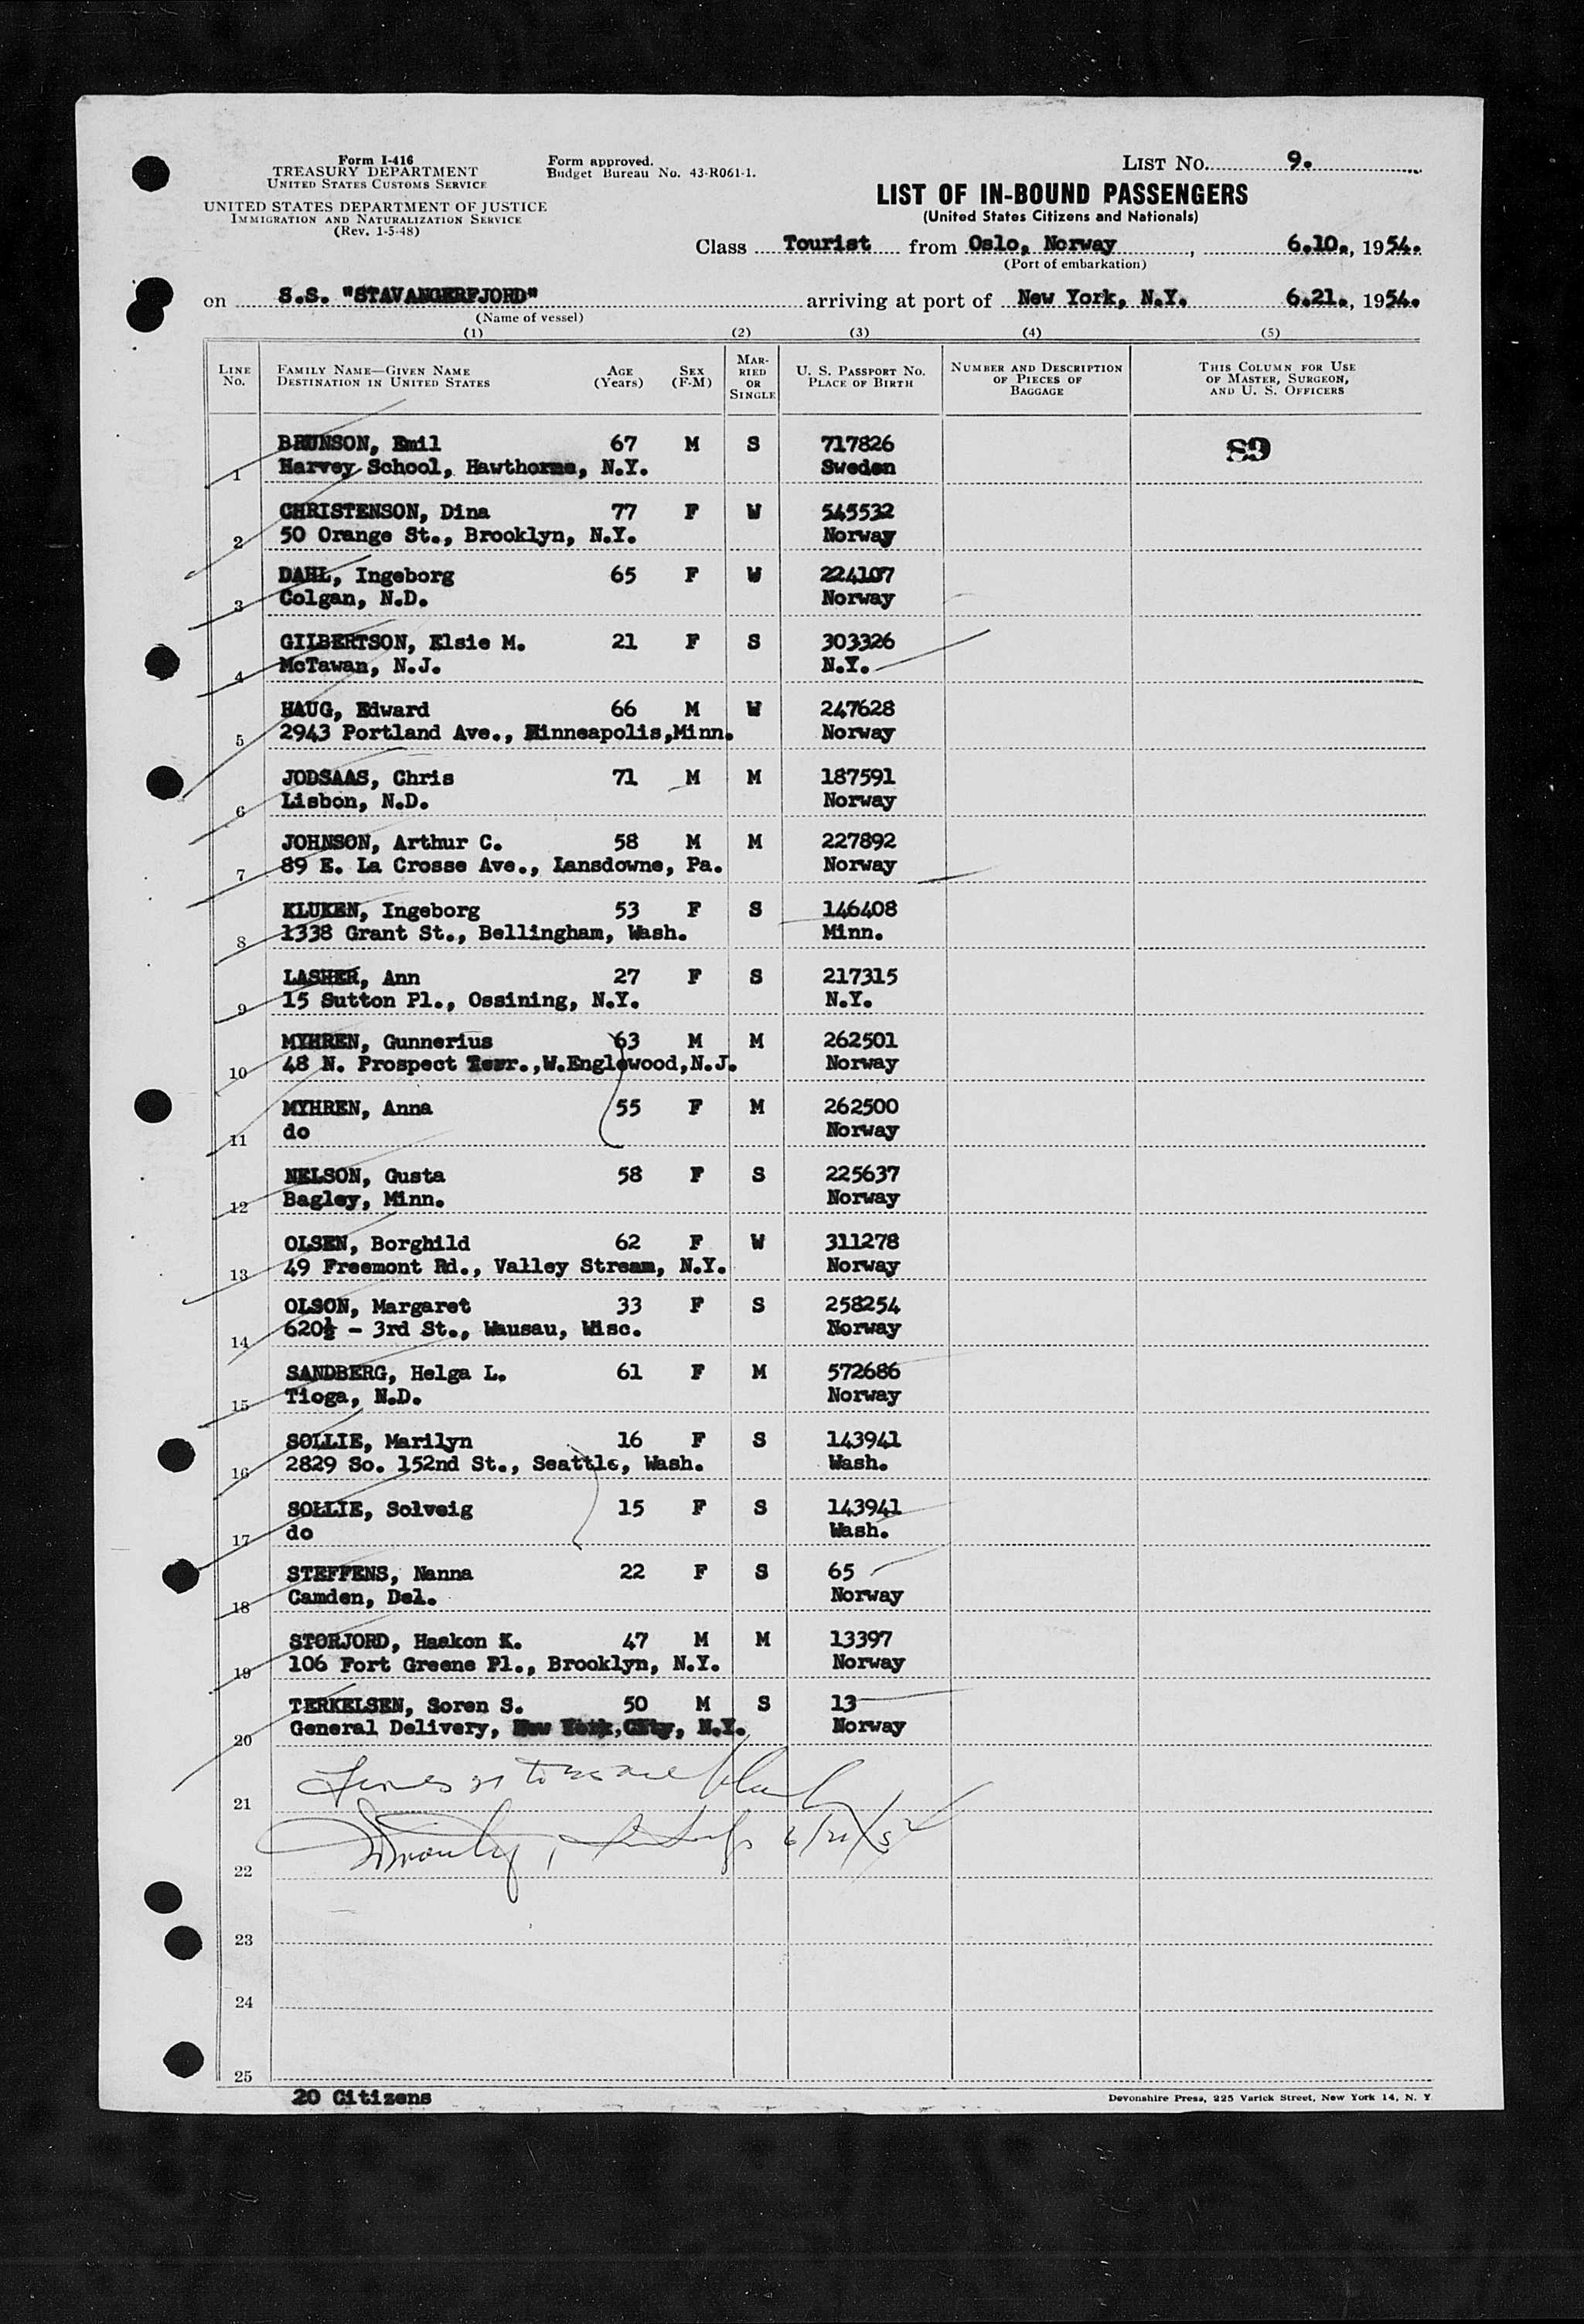 Form I-416
TREASURY DEPARTMENT
UNITED STATES CUSTOMS SERVICE
UNITED STATES DEPARTMENT OF JUSTICE
IMMIGRATION AND NATURALIZATION SERVICE
(Rev. 1-5-48)
Form approved.
Budget Bureau No. 43-R061-1.
LIST NO. 9.
LIST OF IN-BOUND PASSENGERS
(United States Citizens and Nationals)
Class Tourist from Oslo, Norway, 6.10., 1954.
(Port of embarkation)
on S.S. "STAVANGERFJORD" arriving at port of New York, N.Y. 6.21., 1954.
(Name of vessel)
(1) (2) (3) (4) (5)
LINE NO. FAMILY NAME—GIVEN NAME DESTINATION IN UNITED STATES AGE (Years) SEX (F-M) MARRIED OR SINGLE U. S. PASSPORT NO. PLACE OF BIRTH NUMBER AND DESCRIPTION OF PIECES OF BAGGAGE THIS COLUMN FOR USE OF MASTER, SURGEON, AND U. S. OFFICERS
BRUNSON, Emil 67 M S 717826 89
1 Harvey School, Hawthorne, N.Y. Sweden
CHRISTENSON, Dina 77 F W 545532
2 50 Orange St., Brooklyn, N.Y. Norway
DAHL, Ingeborg 65 F W 224107
3 Colgan, N.D. Norway
GILBERTSON, Elsie M. 21 F S 303326
4 McTawan, N.J. N.Y.
HAUG, Edward 66 M W 247628
5 2943 Portland Ave., Minneapolis,Minn. Norway
JODSAAS, Chris 71 M M 187591
6 Lisbon, N.D. Norway
JOHNSON, Arthur C. 58 M M 227892
7 89 E. La Crosse Ave., Lansdowne, Pa. Norway
KLUKEN, Ingeborg 53 F S 146408
8 1338 Grant St., Bellingham, Wash. Minn.
LASHER, Ann 27 F S 217315
9 15 Sutton Pl., Ossining, N.Y. N.Y.
MYHREN, Gunnerius 63 M M 262501
10 48 N. Prospect Terr.,W.Englewood,N.J. Norway
MYHREN, Anna 55 F M 262500
11 do Norway
NELSON, Gusta 58 F S 225637
12 Bagley, Minn. Norway
OLSEN, Borghild 62 F W 311278
13 49 Freemont Rd., Valley Stream, N.Y. Norway
OLSON, Margaret 33 F S 258254
14 620½ - 3rd St., Wausau, Wisc. Norway
SANDBERG, Helga L. 61 F M 572686
15 Tioga, N.D. Norway
SOLLIE, Marilyn 16 F S 143941
16 2829 So. 152nd St., Seattle, Wash. Wash.
SOLLIE, Solveig 15 F S 143941
17 do Wash.
STEFFENS, Nanna 22 F S 65
18 Camden, Del. Norway
STORJORD, Haakon K. 47 M M 13397
19 106 Fort Greene Pl., Brooklyn, N.Y. Norway
TERKELSEN, Soren S. 50 M S 13
20 General Delivery, New York,City, N.Y. Norway
21
22 6/21/54
23
24
25
20 Citizens
Devonshire Press, 225 Varick Street, New York 14, N. Y.